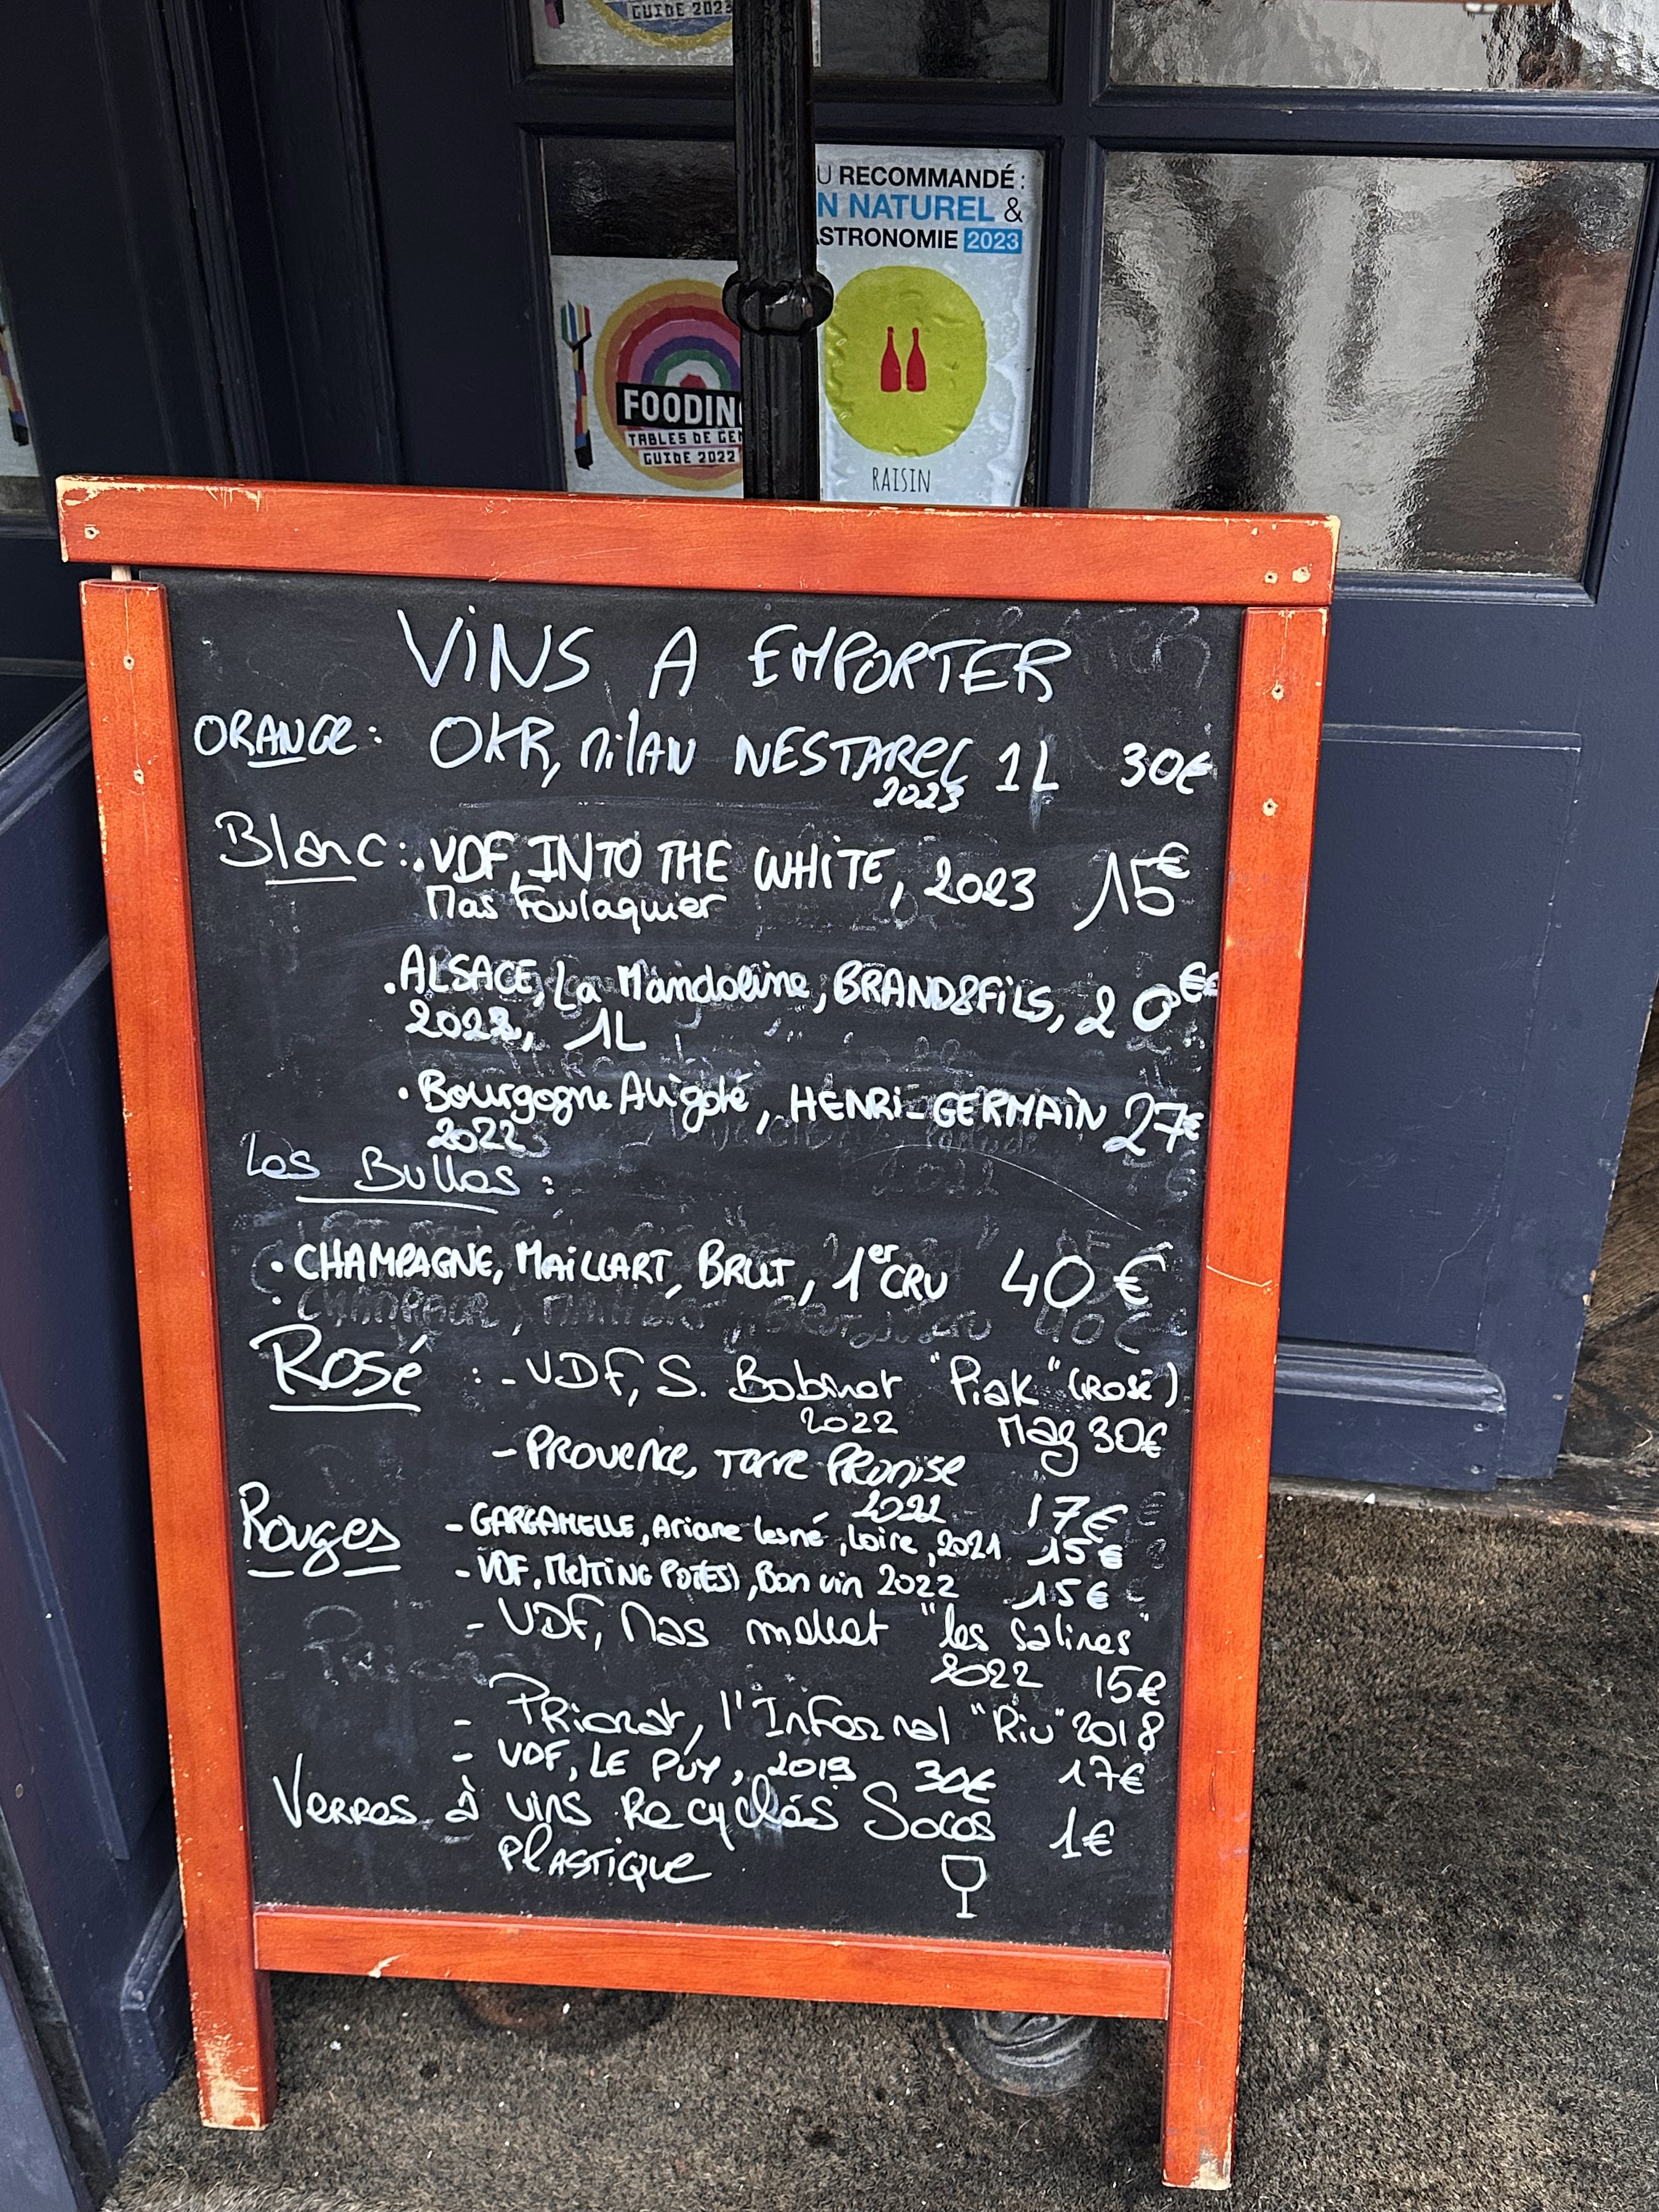 GUIDE 2023
U RECOMMANDÉ :
N NATUREL &
ASTRONOMIE 2023
FOODIN
TABLES DE GEN
GUIDE 2022
RAISIN
VINS A EMPORTER
ORANGE : OKR, MILAN NESTAREC 1L 30€
2023
Blanc : . VDF, INTO THE WHITE, 2023 15€
Mas Foulaquier
. ALSACE, La Mandoline, BRAND&FILS, 20€
2022, 1L
. Bourgogne Aligoté, HENRI-GERMAIN 27€
2022
Les Bulles :
. CHAMPAGNE, MAILLART, BRUT, 1er CRU 40€
Rosé : - VDF, S. Bobinet "Piak" (Rosé)
2022 Mag 30€
- PROVENCE, Terre PROMISE
2022 17€
Rouges - GARGAMELLE, Ariane Lesné, Loire, 2021 15€
- VDF, MELTING POTE(S), Bon vin 2022 15€
- VDF, Mas mellet "les Salines"
2022 15€
- PRiorat, l'Infernal "Riu" 2018
17€
- VDF, LE PUY, 2019 30€
Verres à vins Recyclés Socos 1€
PLASTIQUE